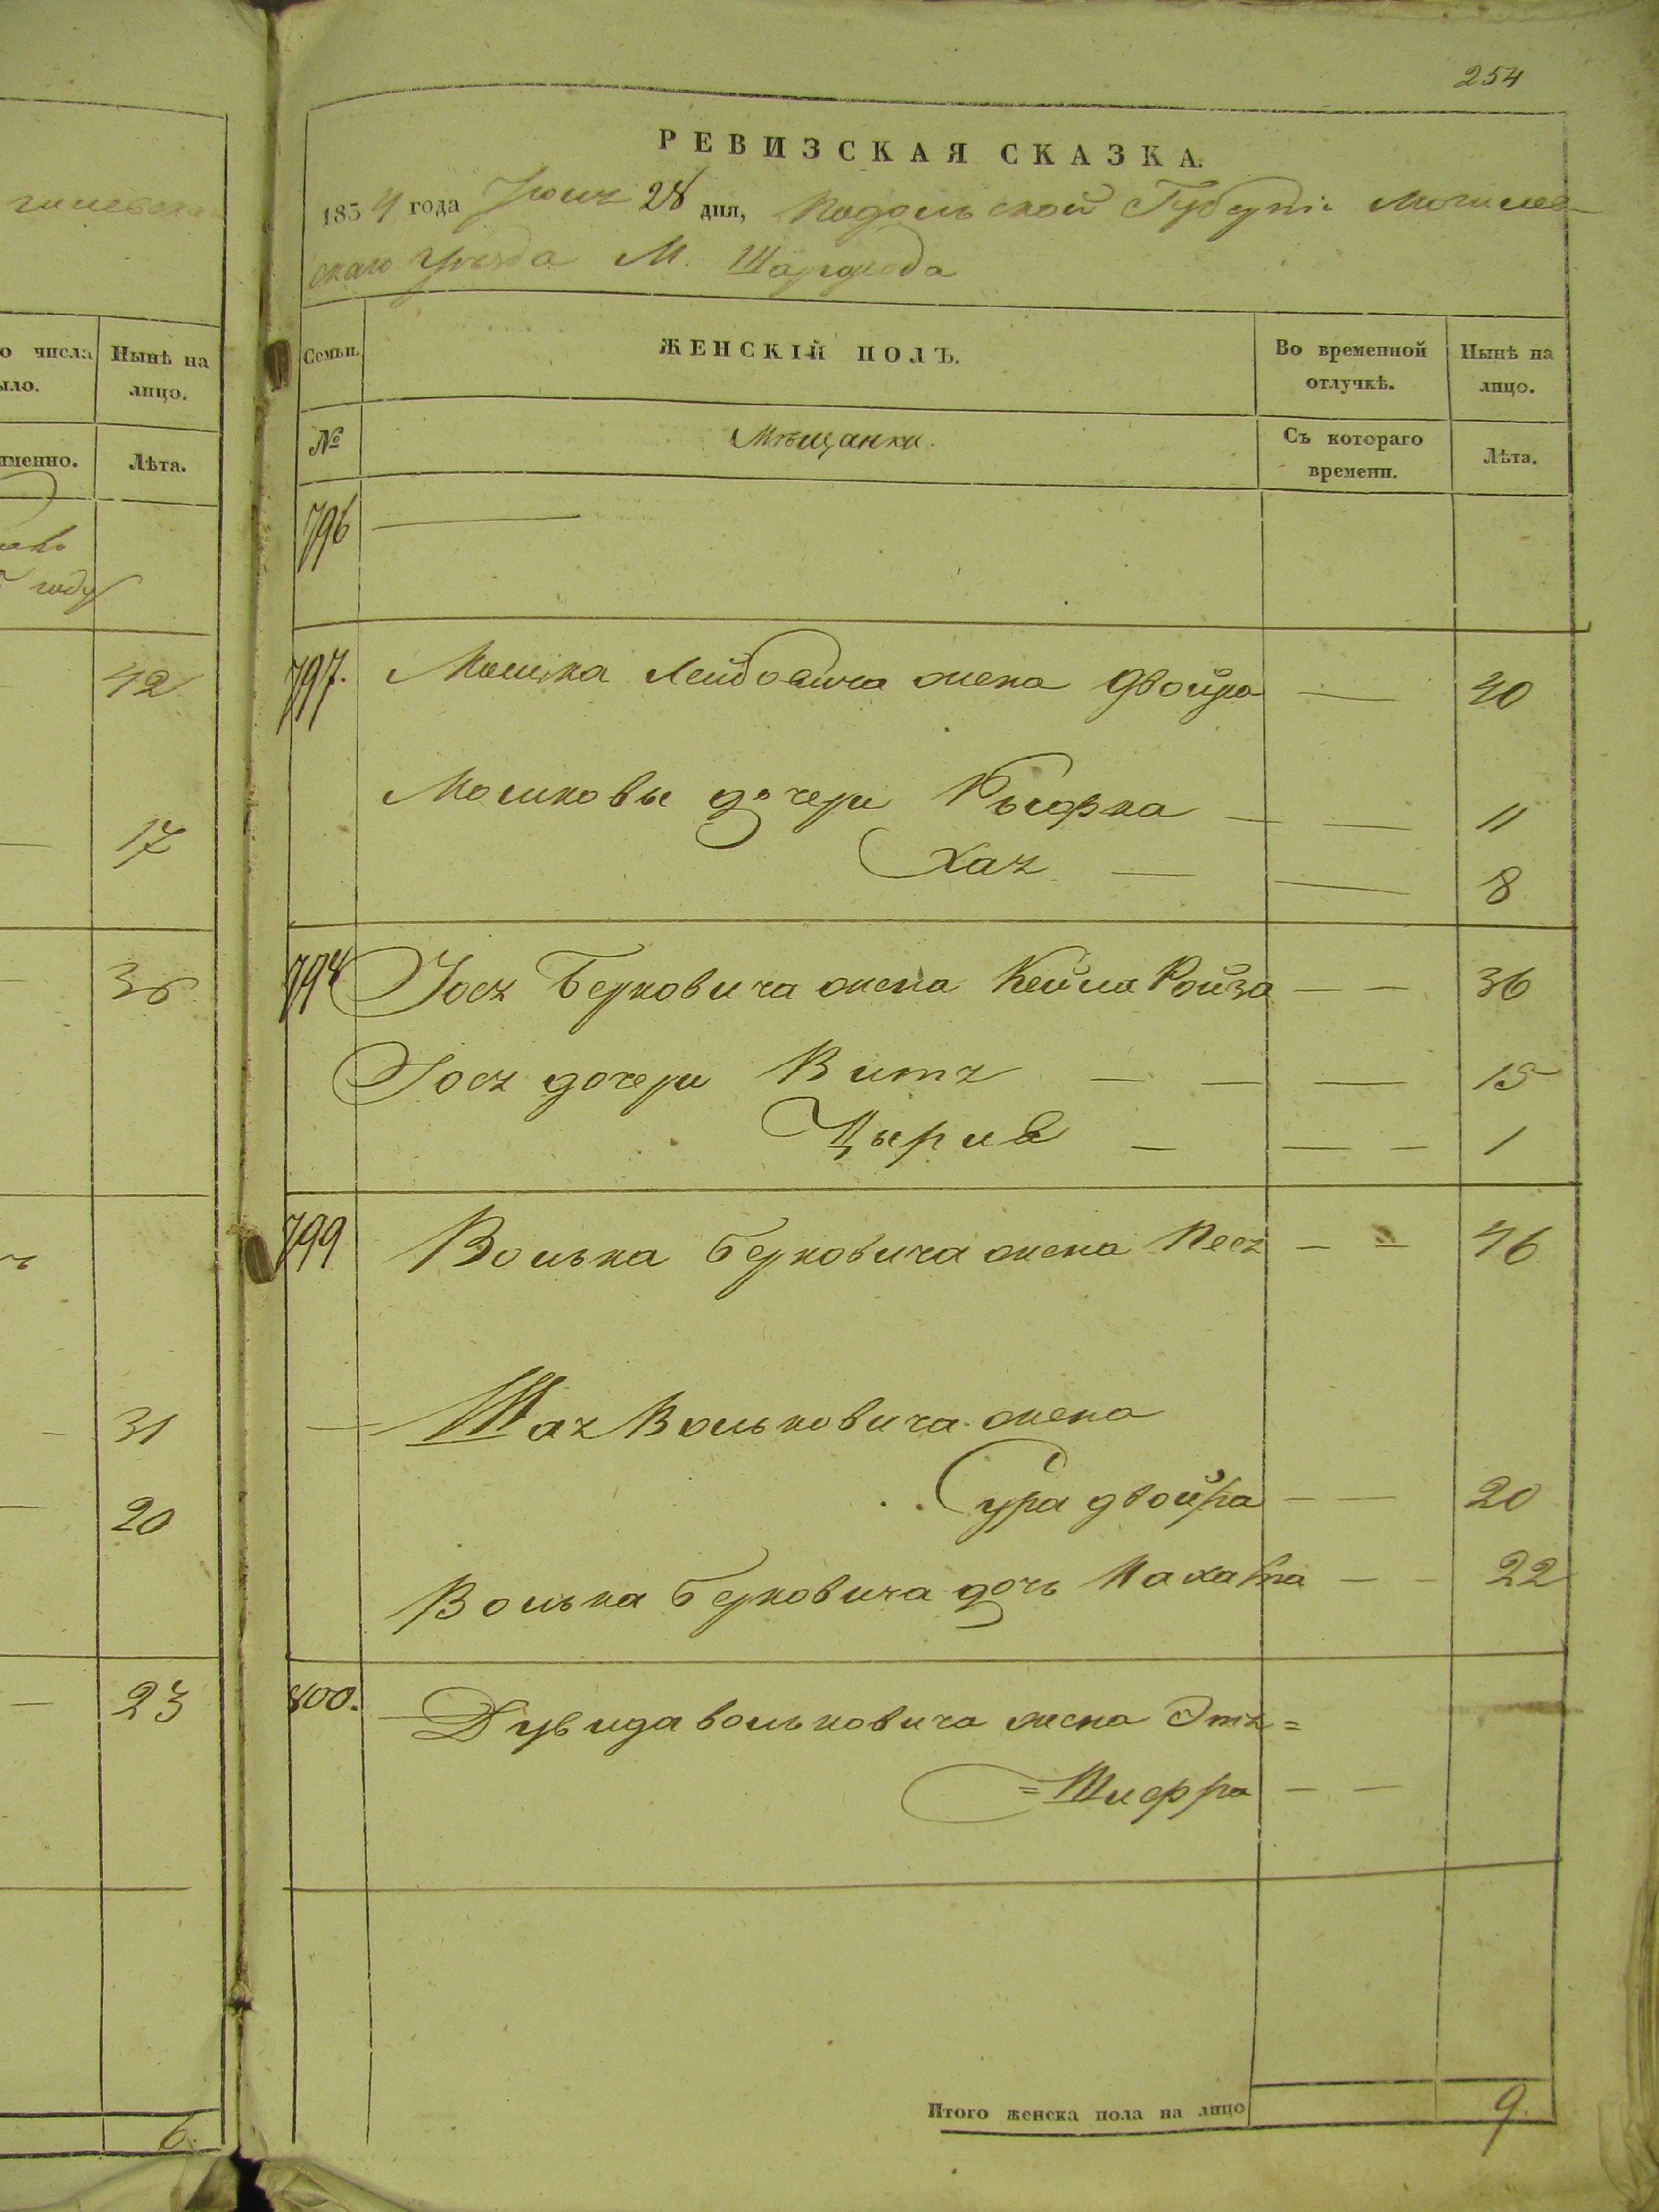 254
РЕВИЗСКАЯ СКАЗКА.
1854 года Июля 28 дня, Подольской Губерніи Могилев-
скаго Уѣзда М. Шаргрода
о числа
ыло.
Нынѣ на
лицо.
именно.
Лѣта.
году
42
17
36
31
20
23
6.
Семьи.
ЖЕНСКІЙ ПОЛЪ.
Во временной
отлучкѣ.
Нынѣ на
лицо.
№
Мѣщанки.
Съ котораго
времени.
Лѣта.
796
797. Мошка Лейбовича жена Двойра — 40
Мошковы дочери — — 11
Хая — — 8
798 Іося Берковича жена Кейла Ройза — — 36
Іося дочери Витя — — — 15
Цырля — — — 1
799 Волька Берковича жена Песя — — 46
— Шая Вольковича жена
Сура Двойра — — 20
Волька Берковича дочь — — 22
800. — Дувида Вольковича жена Этя=
=Шифра — —
Итого женска пола на лицо 9.